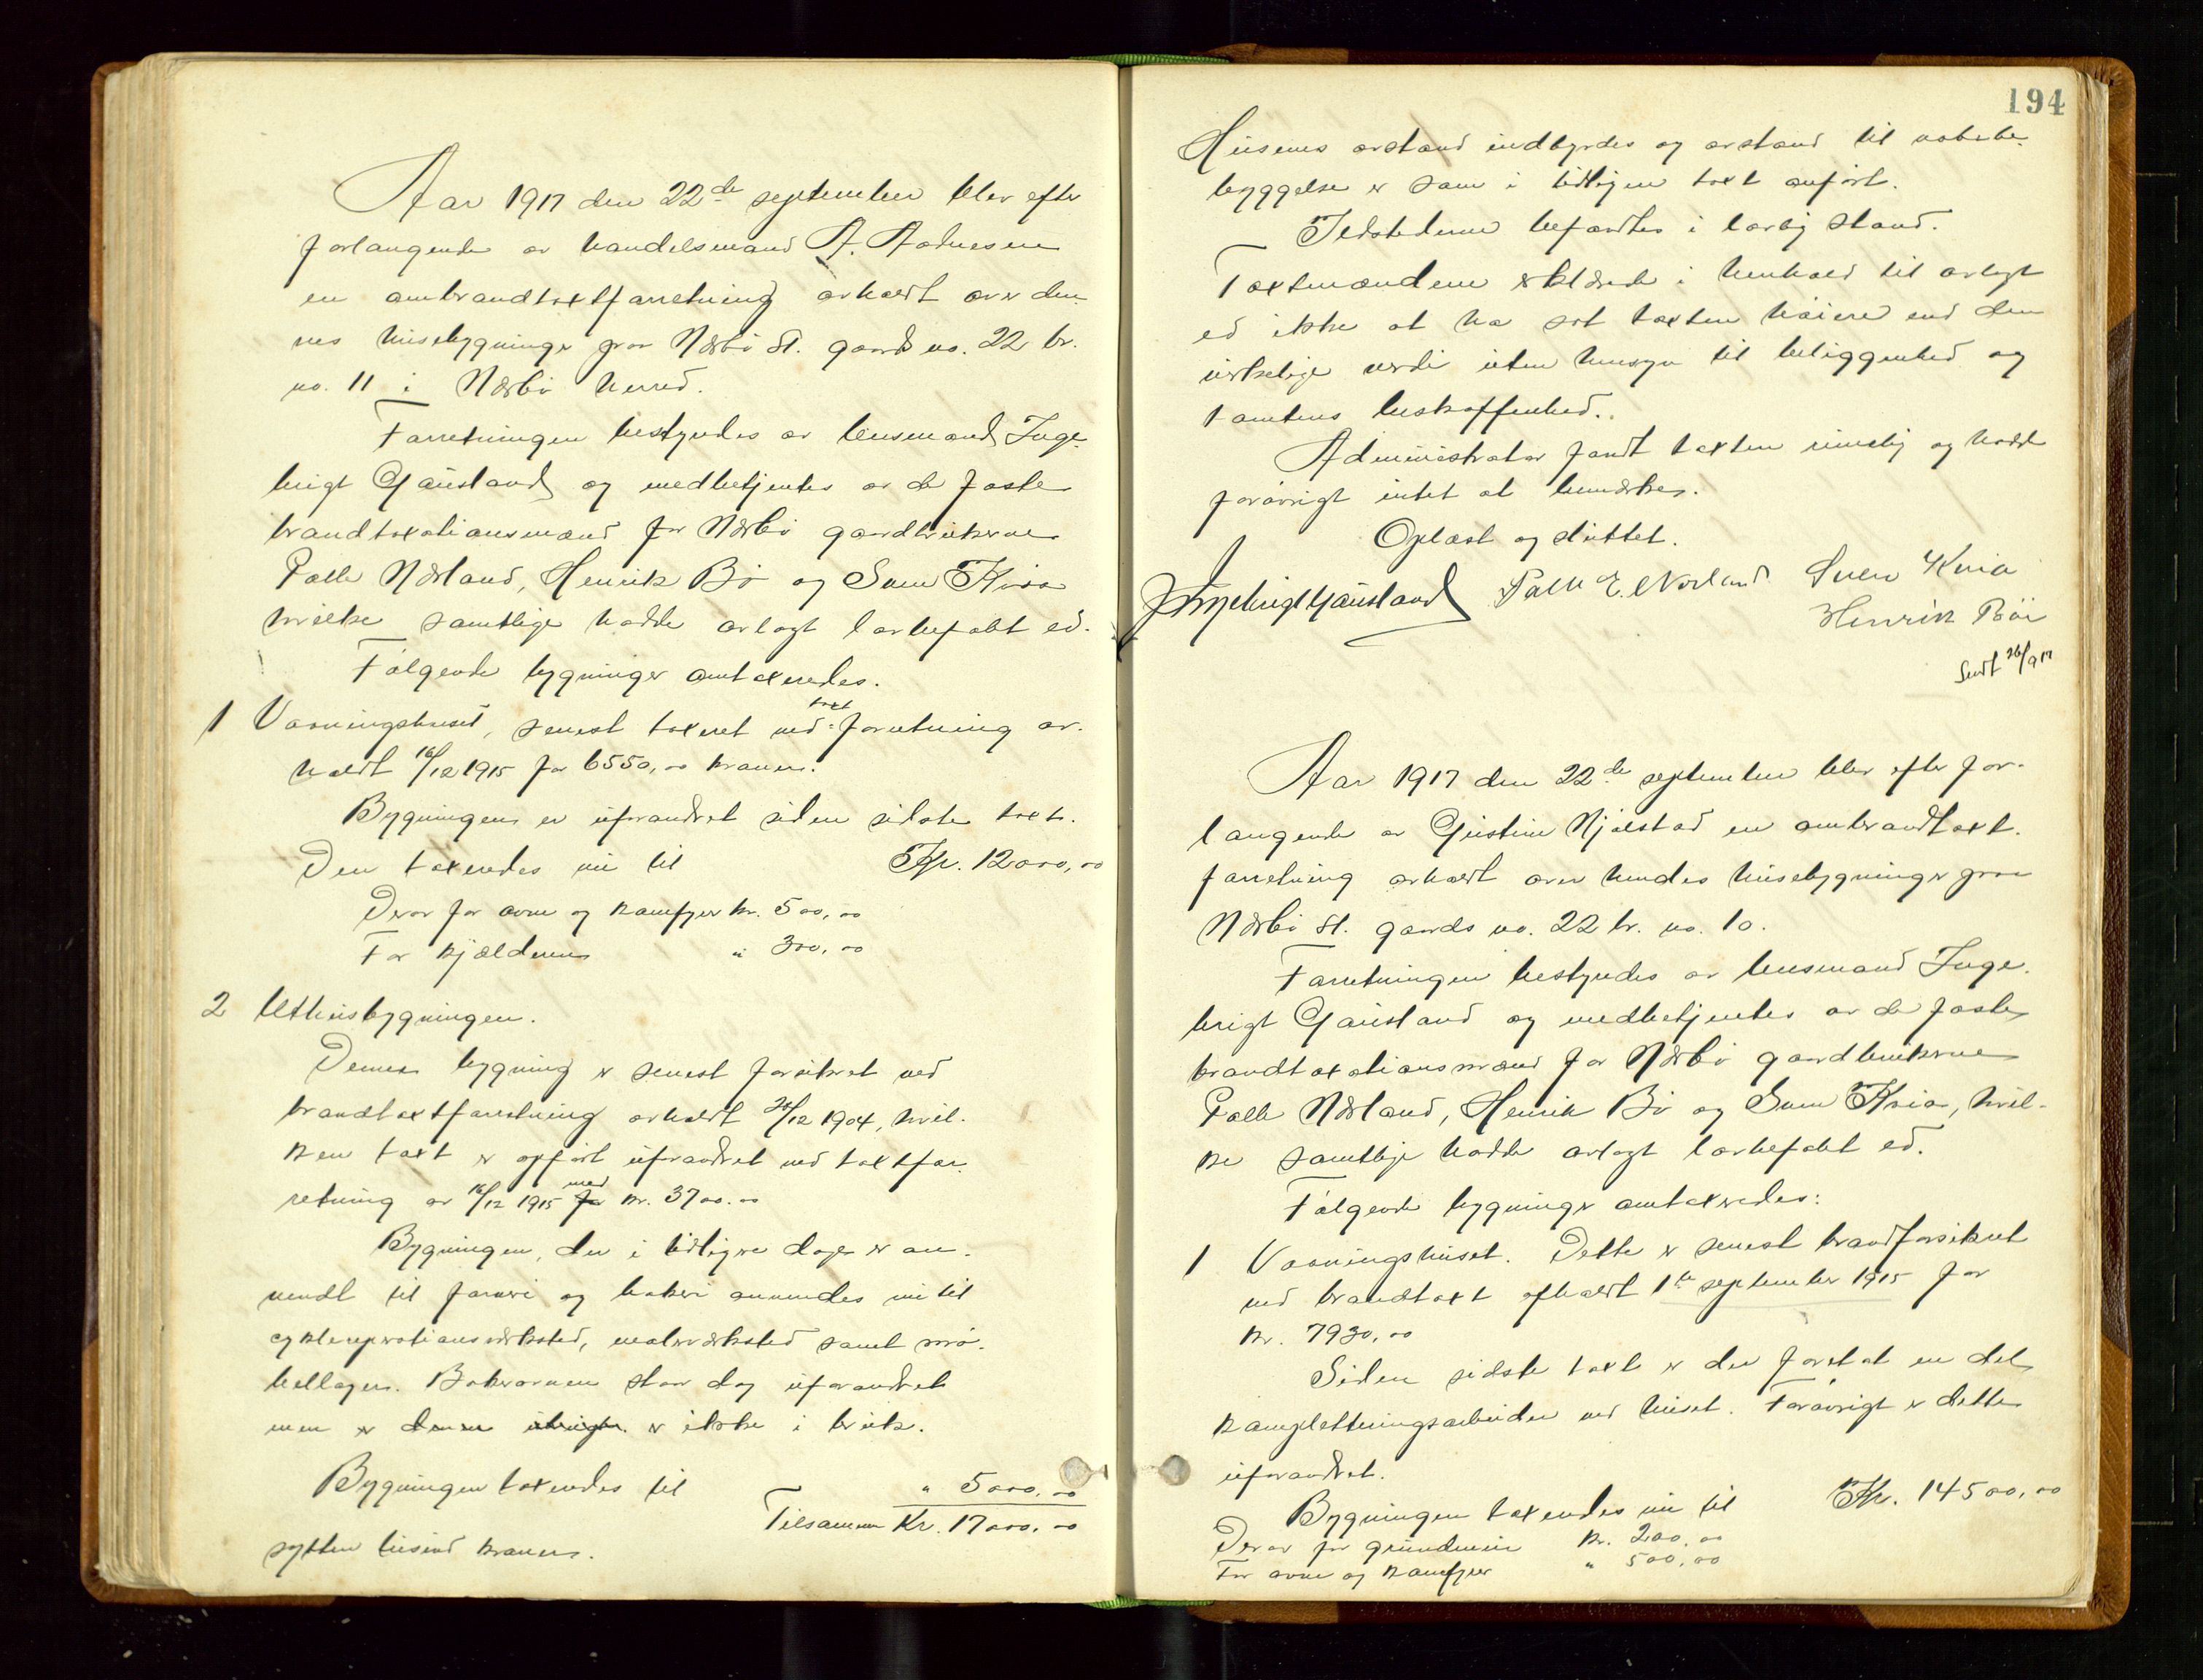 Aar 1917 den 22de september blev efter
forlangende av handelsmand A. Aadnesen
en ombrandtaxtforretning avholdt over den-
nes husebygninger paa Nærbø St. gaards no. 22 br.
no. 11 i Nærbø herred.
Forretningen bestyredes av lensmand Inge-
brigt Gausland og medbetjentes av de faste
brandtaxationsmænd for Nærbø gaardbrukerne
Palle Nærland, Henrik Bø og Sven Kvia
hvilke samtlige hadde avlagt lovbefalt ed.
Følgende bygninger omtaxeredes.
1 Vaaningshuset, senest taxeret ved taxt forretning av-
holdt 16/12 1915 for 6550,00 kroner.
Bygningen er uforandret siden sidste taxt.
Den taxeredes nu til Kr. 12000,00
Derav for ovne og komfyer kr. 500,00
For kjælderen " 300,00
2 Uthusbygningen.
Denne bygning er senest forsikret ved
brandtaxtforretning avholdt /12 1904, hvil-
ken taxt er opført uforandret ved taxtfor-
retning av 16/12 1915 for med kr. 3700.00
Bygningen, der i tidligere dage er an-
vendt til farveri og bakeri anvendes nu til
cyklereperationsverksted, malerværksted samt mø-
bellager. Bakerovnen staar dog uforandret
men er denne er ikke i bruk.
Bygningen taxeredes til " 5000,00
Tilsammen Kr. 17000,00
sytten tusind kroner.
194
Husenes avstand indbyrdes og avstand til nabobe-
byggelse er som i tidligere taxt anført.
Ildstederne befandtes i lovlig stand.
Taxtmændene erklærede i henhold til avlagt
ed ikke at ha sat taxten høiere end den
virkelige verdi uten hensyn til beliggenhed og
tomtens beskaffenhed.
Administrator fandt taxten rimelig og hadde
forøvrigt intet at bemærke.
Oplæst og sluttet.
Ingebrigt Gausland Palle E. Nærland Sven Kvia
Henrik Bøe
Sendt 26/9 17
Aar 1917 den 22de september blev efter for-
langende av Gustine Njølstad en ombrandtaxt-
forretning avholdt over hendes husebygninger paa
Nærbø St. gaards no. 22 br. no. 10.
Forretningen bestyredes av lensmand Inge-
brigt Gausland og medbetjentes av de faste
brandtaxationsmænd for Nærbø gaardbrukerne
Palle Nærland, Henrik Bø og Sven Kvia, hvil-
ke samtlige hadde avlagt lovbefalt ed.
Følgende bygninger omtaxeredes:
1 Vaaningshuset. Dette er senest brandforsikret
ved brandtaxt afholdt 1te september 1915 for
kr. 7930,00
Siden sidste taxt er der foretat en del
kompletteringsarbeider ved huset. Forøvrigt er dette
uforandret.
Bygningen taxeredes nu til Kr. 14500,00
Derav for grundmur kr. 200,00
For ovne og komfyer " 500,00